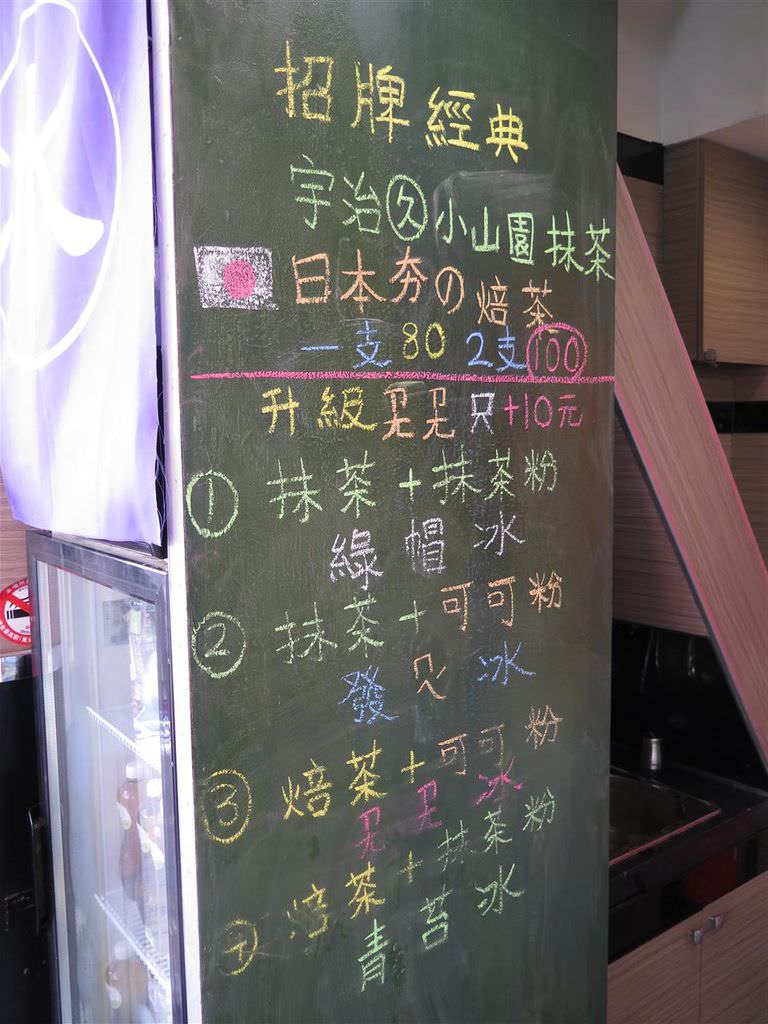 招牌經典
宇治久小山園抹茶
日本夯の焙茶
一支80 2支100
升級 只+10元
① 抹茶+抹茶粉
綠帽冰
② 抹茶+可可粉
發 冰
③ 焙茶+可可粉
冰
④ 焙茶+抹茶粉
青苔冰